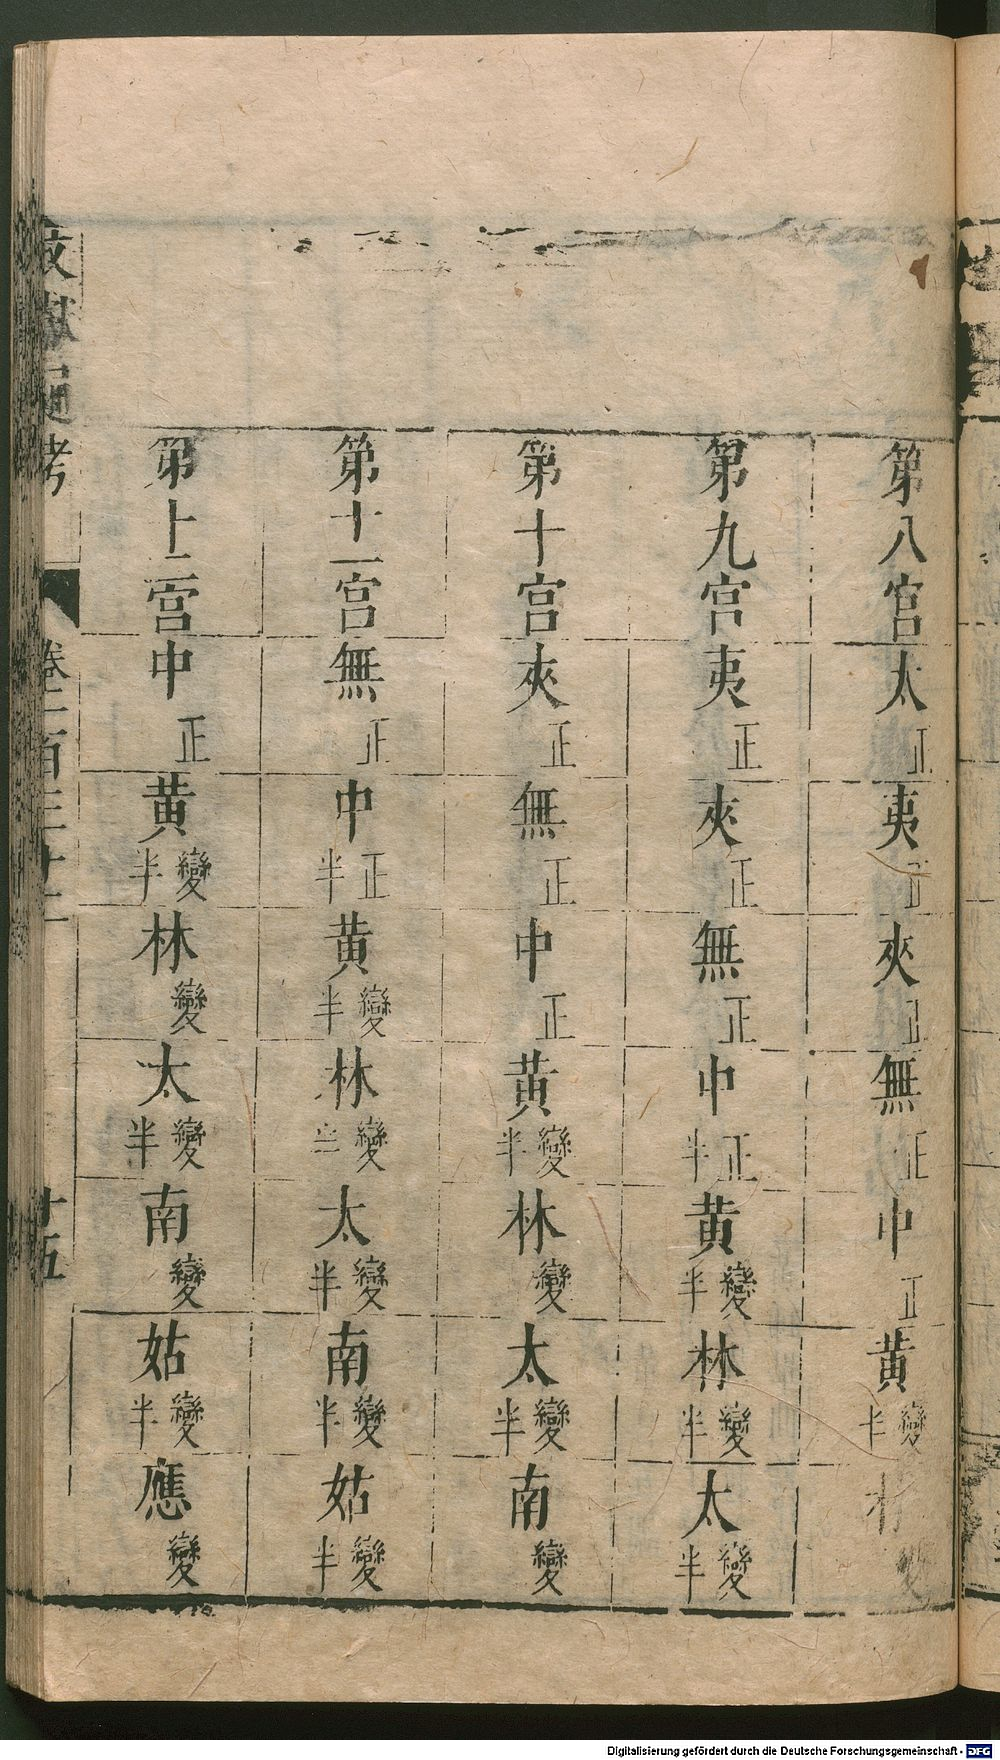 第八宮太正夷正夾正無正中正黃變半林變
第九宮夷正夾正無正中正半黃變半林變半太變半
第十宮夾正無正中正黃變半林變太變半南變
第十一宮無正中正半黃變半林變太變半南變半姑變半
第十二宮中正黃變半林變太變半南變姑變半應變
文獻通考
卷一百三十二
十五
Digitalisierung gefördert durch die Deutsche Forschungsgemeinschaft - DFG